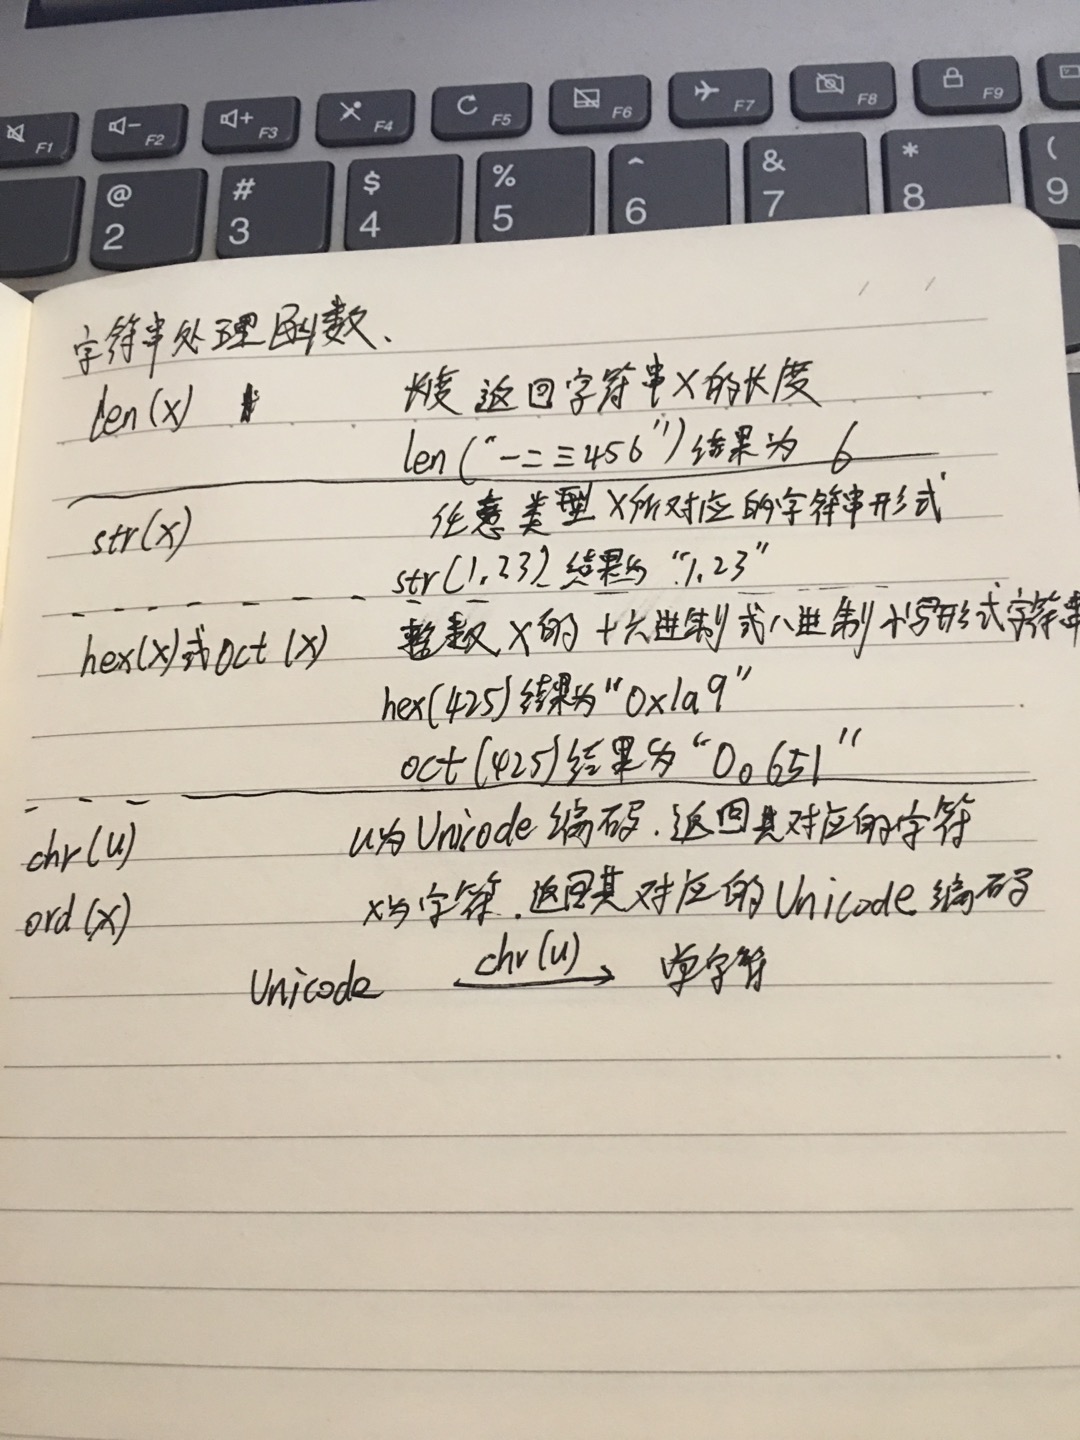 F1 F2 F3 F4 F5 F6 F7 F8 F9
@ # $ % ^ & * (
2 3 4 5 6 7 8 9
字符串处理函数、
len(x) 长度 返回字符串X的长度
len("一二三456")结果为 6
str(x) 任意类型X所对应的字符串形式
str(1.23)结果为"1.23"
hex(x)或oct(x) 整数X的十六进制或八进制小写形式字符串
hex(425)结果为"0x1a9"
oct(425)结果为"0o651"
chr(u) u为Unicode编码.返回其对应的字符
ord(x) x为字符.返回其对应的Unicode编码
chr(u)
Unicode → 单字符